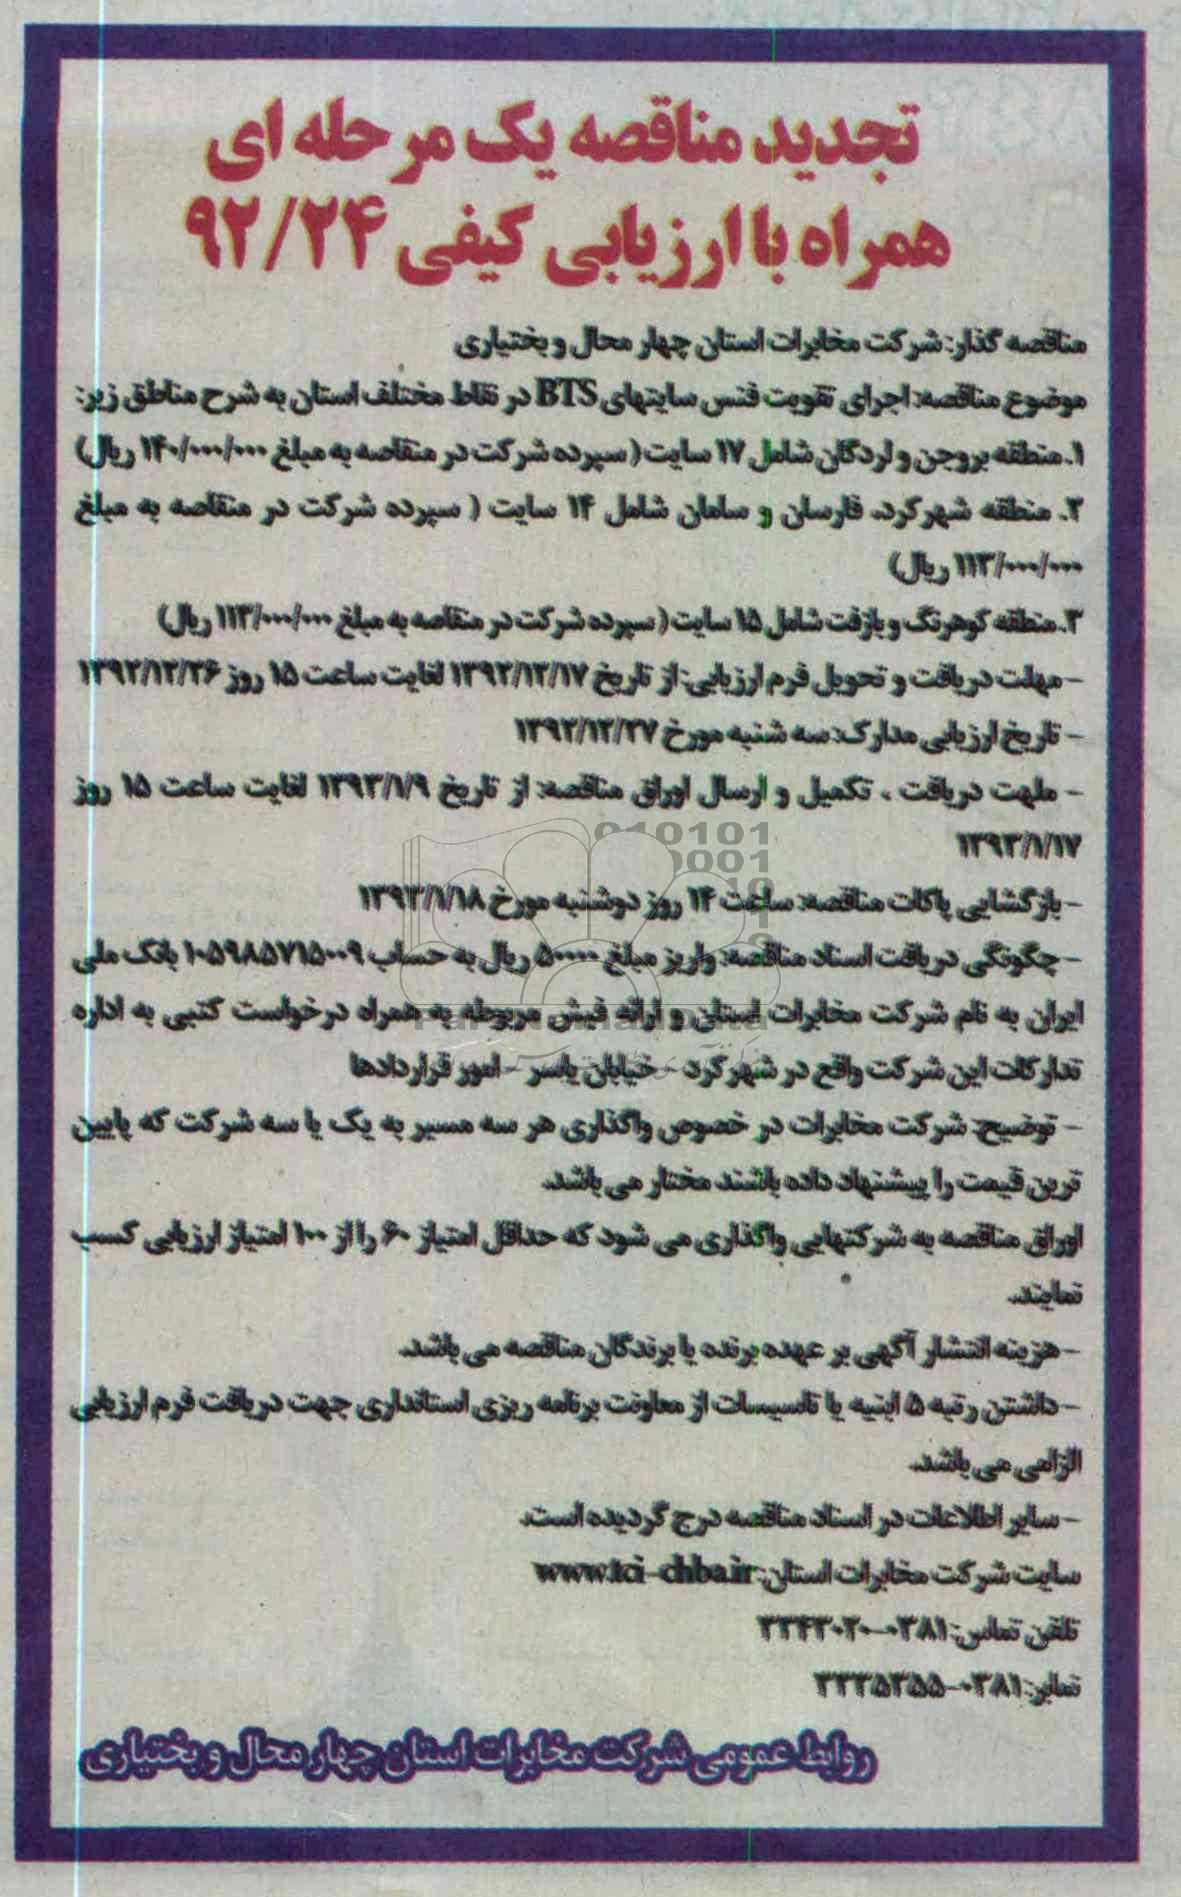 تجدید مناقصه یک مرحله ای
همراه با ارزیابی کیفی ۹۲/۲۴
مناقصه گذار: شرکت مخابرات استان چهار محال و بختیاری
موضوع مناقصه: اجرای تقویت فنس سایتهای BTS در نقاط مختلف استان به شرح مناطق زیر:
۱. منطقه بروجن و لردگان شامل ۱۷ سایت ( سپرده شرکت در منقاصه به مبلغ ۱۴۰/۰۰۰/۰۰۰ ریال)
۲. منطقه شهرکرد، فارسان و سامان شامل ۱۴ سایت ( سپرده شرکت در منقاصه به مبلغ
۱۱۳/۰۰۰/۰۰۰ ریال)
۳. منطقه کوهرنگ و بازفت شامل ۱۵ سایت ( سپرده شرکت در منقاصه به مبلغ ۱۱۳/۰۰۰/۰۰۰ ریال)
- مهلت دریافت و تحویل فرم ارزیابی: از تاریخ ۱۳۹۲/۱۲/۱۷ لغایت ساعت ۱۵ روز ۱۳۹۲/۱۲/۲۶
- تاریخ ارزیابی مدارک: سه شنبه مورخ ۱۳۹۲/۱۲/۲۷
- ملهت دریافت ، تکمیل و ارسال اوراق مناقصه: از تاریخ ۱۳۹۳/۱/۹ لغایت ساعت ۱۵ روز
۱۳۹۳/۱/۱۷
- بازگشایی پاکات مناقصه: ساعت ۱۴ روز دوشنبه مورخ ۱۳۹۳/۱/۱۸
- چگونگی دریافت اسناد مناقصه: واریز مبلغ ۵۰۰۰۰ ریال به حساب ۱۰۵۹۸۵۷۱۵۰۰۹ بانک ملی
ایران به نام شرکت مخابرات استان و ارائه فیش مربوطه به همراه درخواست کتبی به اداره
تدارکات این شرکت واقع در شهرکرد - خیابان یاسر - امور قراردادها
- توضیح: شرکت مخابرات در خصوص واگذاری هر سه مسیر به یک یا سه شرکت که پایین
ترین قیمت را پیشنهاد داده باشند مختار می باشد.
اوراق مناقصه به شرکتهایی واگذاری می شود که حداقل امتیاز ۶۰ را از ۱۰۰ امتیاز ارزیابی کسب
نمایند.
- هزینه انتشار آگهی بر عهده برنده یا برندگان مناقصه می باشد.
- داشتن رتبه ۵ ابنیه یا تاسیسات از معاونت برنامه ریزی استانداری جهت دریافت فرم ارزیابی
الزامی می باشد.
- سایر اطلاعات در اسناد مناقصه درج گردیده است.
سایت شرکت مخابرات استان: www.tci-chba.ir
تلفن تماس: ۰۳۸۱-۳۳۴۳۰۲۰
نمابر: ۰۳۸۱-۳۳۳۵۲۵۵
روابط عمومی شرکت مخابرات استان چهار محال و بختیاری
ParsNamadData